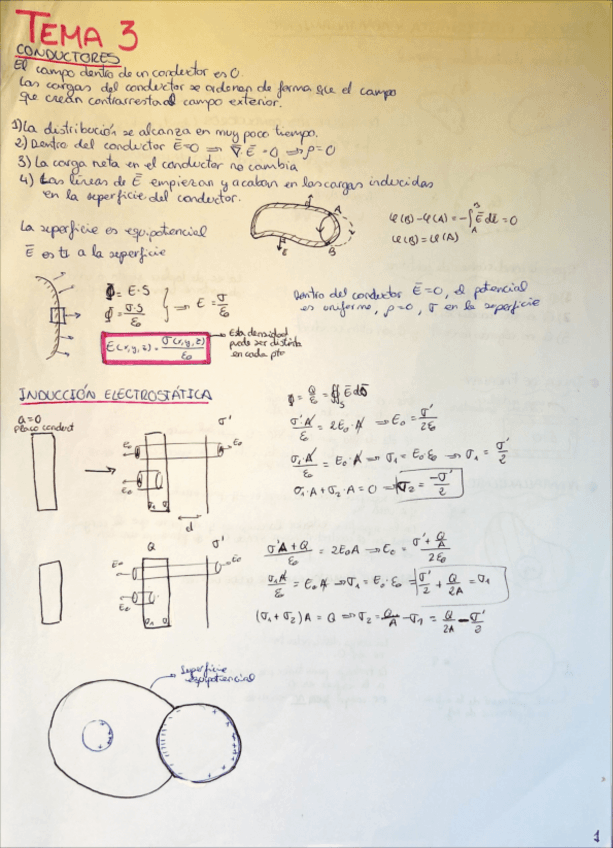 TEMA 3
CONDUCTORES
El campo dentro de un conductor es 0.
Las cargas del conductor se ordenan de forma que el campo
que crean contrarresta al campo exterior.
1) La distribución se alcanza en muy poco tiempo.
2) Dentro del conductor E̅=0 ⟹ ∇̅·E̅=0 ⟹ ρ=0
3) La carga neta en el conductor no cambia
4) Las líneas de E̅ empiezan y acaban en las cargas inducidas
en la superficie del conductor.
La superficie es equipotencial
E̅ es ⊥ a la superficie
A
B
E
φ(B)-φ(A)=-∫_A^B E̅dl=0
φ(B)=φ(A)
Φ=E·S
Φ=σ·S/ε₀
⟹ E=σ/ε₀
E(x,y,z)=σ(x,y,z)/ε₀
Esta densidad
puede ser distinta
en cada pto
Dentro del conductor E̅=0, el potencial
es uniforme, ρ=0, σ en la superficie
INDUCCIÓN ELECTROSTÁTICA
Q=0
placa conduct
σ'
E₀
E₀
E₀
d
Φ=Q/ε₀=∯_S E̅dS̅
σ'·A/ε₀=2E₀·A ⟹ E₀=σ'/2ε₀
σ₁·A/ε₀=E₀·A ⟹ σ₁=E₀·ε₀ ⟹ σ₁=σ'/2
σ₁·A+σ₂·A=0 ⟹ σ₂=-σ'/2
Q
σ'
E₀
E₀
E₀
σ'A+Q/ε₀=2E₀A ⟹ E₀=σ'+Q/A/2ε₀
σ₁A/ε₀=E₀A ⟹ σ₁=E₀·ε₀=σ'/2+Q/2A=σ₁
(σ₁+σ₂)A=Q ⟹ σ₂=Q/A-σ₁=Q/2A-σ'/2
Superficie
equipotencial
1